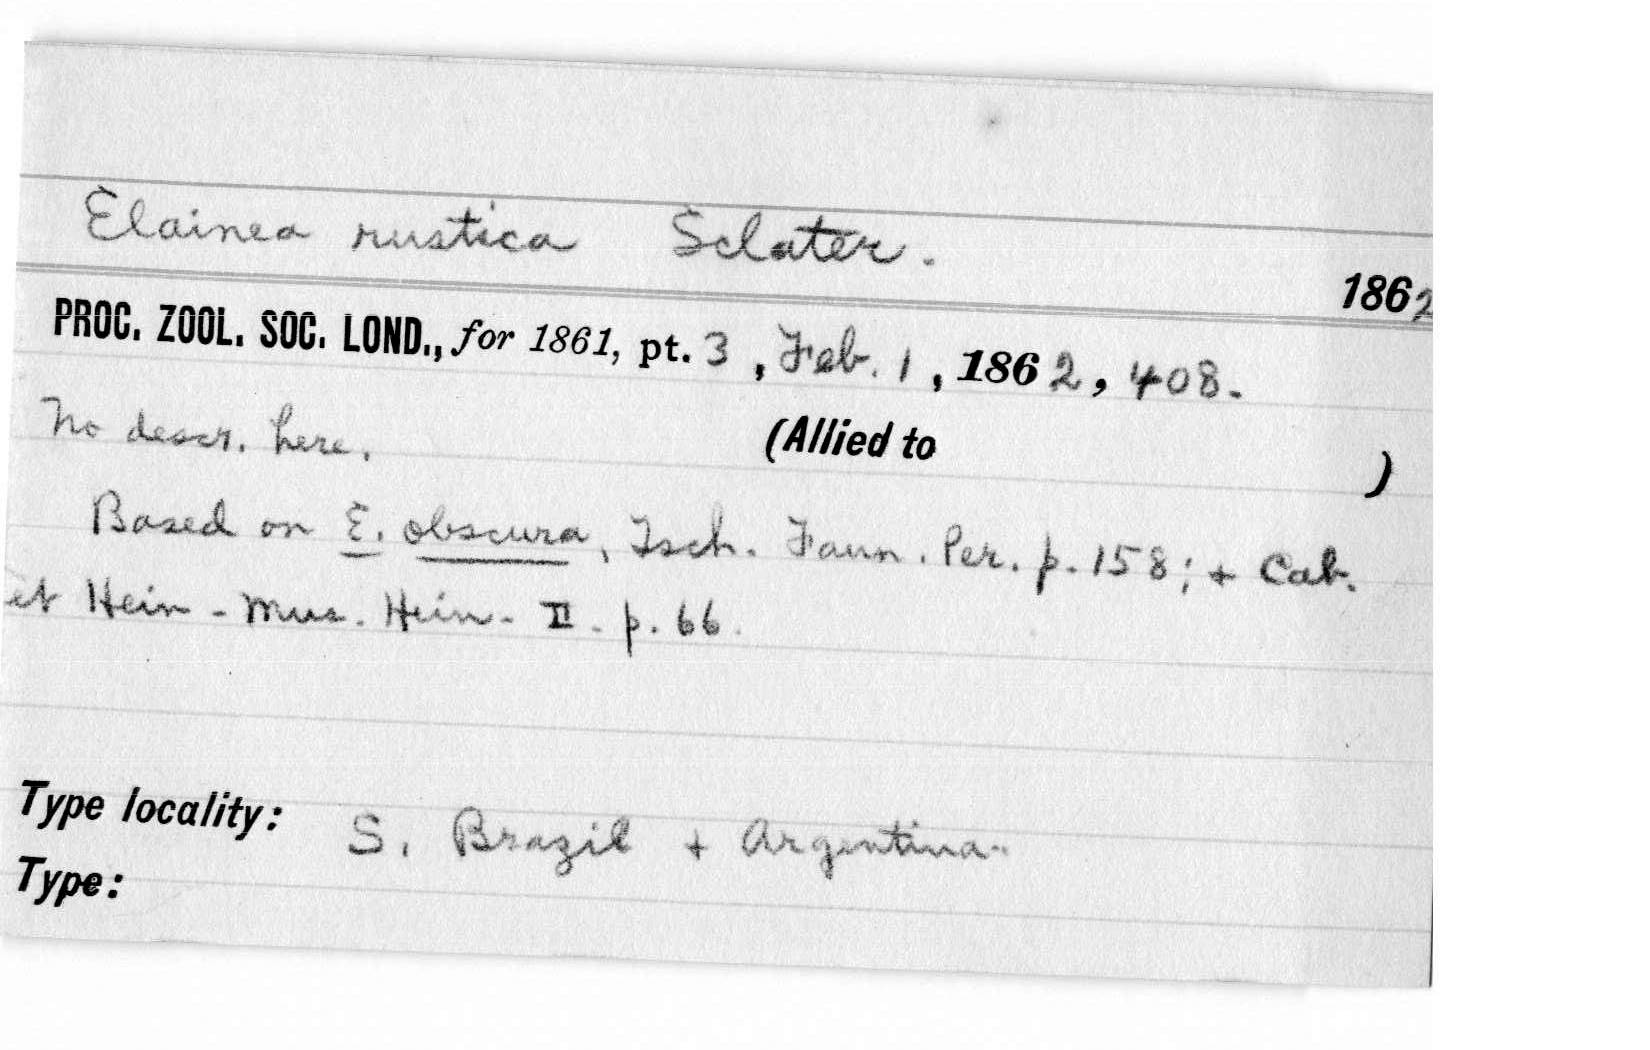 Elainea rustica Sclater.
1862
PROC. ZOOL. SOC. LOND., for 1861, pt. 3, Feb. 1, 1862, 408.
No descr. here. (Allied to )
Based on E. obscura, Tsch. Faun. Per. p. 158; + Cab.
et Hein - Mus. Hein - II - p. 66.
Type locality: S. Brazil + Argentina.
Type: